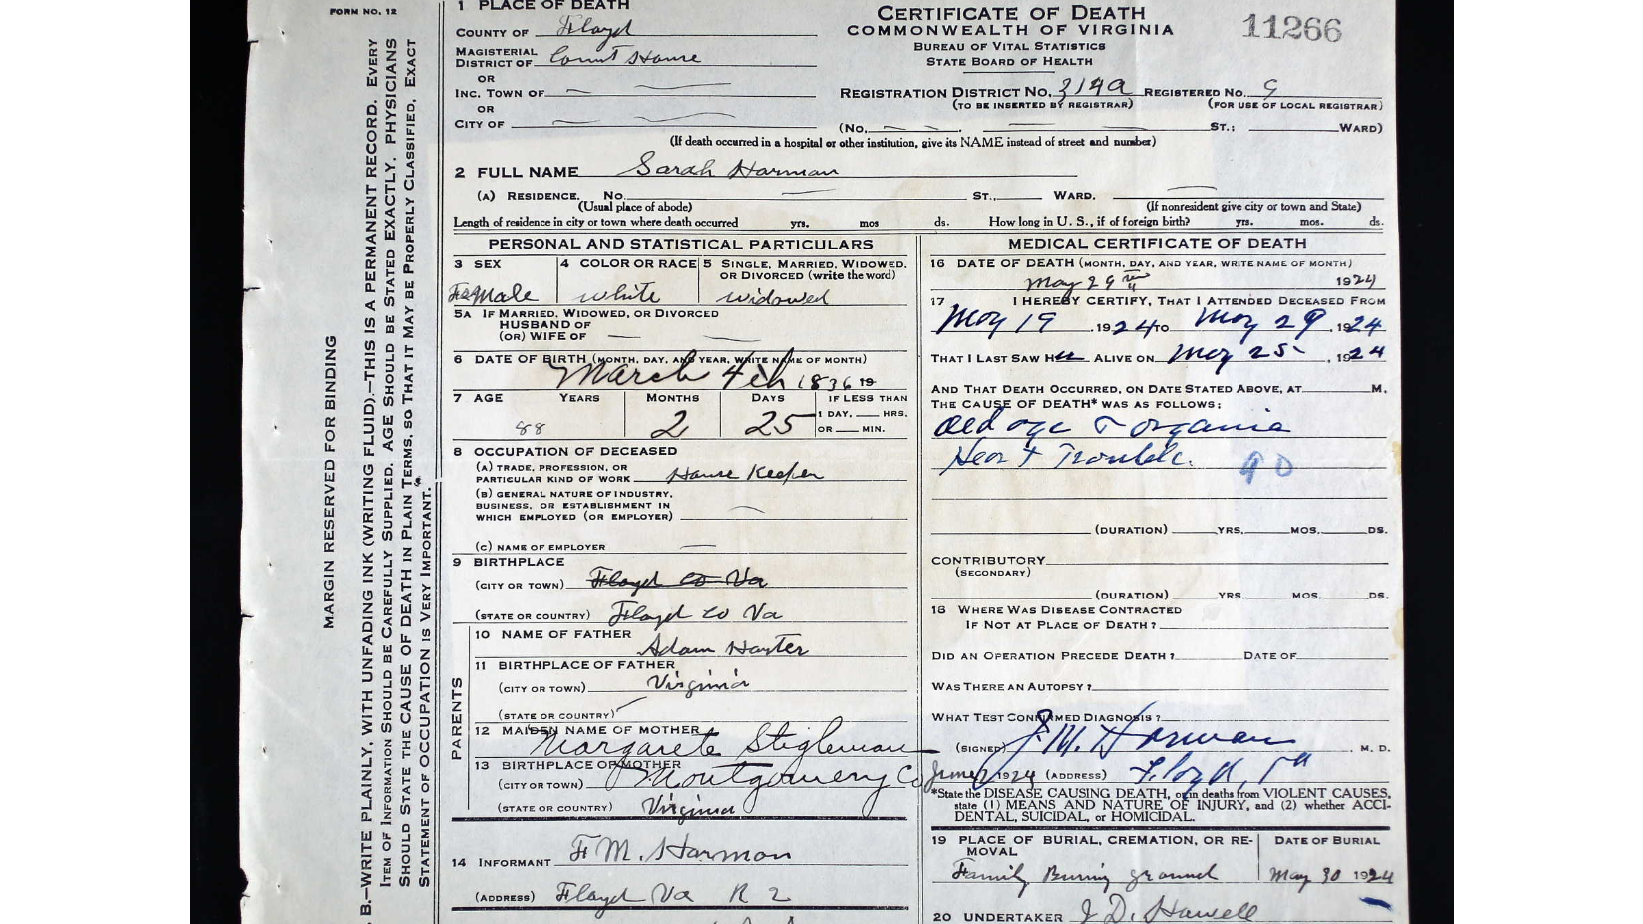 FORM NO. 12
MARGIN RESERVED FOR BINDING
B.—WRITE PLAINLY, WITH UNFADING INK (WRITING FLUID).—THIS IS A PERMANENT RECORD. EVERY
ITEM OF INFORMATION SHOULD BE CAREFULLY SUPPLIED. AGE SHOULD BE STATED EXACTLY. PHYSICIANS
SHOULD STATE THE CAUSE OF DEATH IN PLAIN TERMS, SO THAT IT MAY BE PROPERLY CLASSIFIED. EXACT
STATEMENT OF OCCUPATION IS VERY IMPORTANT.
1 PLACE OF DEATH
COUNTY OF Floyd
MAGISTERIAL
DISTRICT OF Court House
OR
INC. TOWN OF
OR
CITY OF
CERTIFICATE OF DEATH
COMMONWEALTH OF VIRGINIA
BUREAU OF VITAL STATISTICS
STATE BOARD OF HEALTH
11266
REGISTRATION DISTRICT NO. 314a REGISTERED NO. 9
(TO BE INSERTED BY REGISTRAR) (FOR USE OF LOCAL REGISTRAR)
(NO. ST.; WARD)
(If death occurred in a hospital or other institution, give its NAME instead of street and number)
2 FULL NAME Sarah Harman
(A) RESIDENCE. NO. ST., WARD.
(Usual place of abode) (If nonresident give city or town and State)
Length of residence in city or town where death occurred yrs. mos ds. How long in U. S., if of foreign birth? yrs. mos. ds.
PERSONAL AND STATISTICAL PARTICULARS
3 SEX 4 COLOR OR RACE 5 SINGLE, MARRIED, WIDOWED, OR DIVORCED (write the word)
FeMale white widowed
5A IF MARRIED, WIDOWED, OR DIVORCED
HUSBAND OF
(OR) WIFE OF
6 DATE OF BIRTH (MONTH, DAY, AND YEAR, WRITE NAME OF MONTH)
March 4th 1836 19
7 AGE YEARS MONTHS DAYS IF LESS THAN
1 DAY, HRS.
88 2 25 OR MIN.
8 OCCUPATION OF DECEASED
(A) TRADE, PROFESSION, OR
PARTICULAR KIND OF WORK House Keeper
(B) GENERAL NATURE OF INDUSTRY,
BUSINESS, OR ESTABLISHMENT IN
WHICH EMPLOYED (OR EMPLOYER)
(C) NAME OF EMPLOYER
9 BIRTHPLACE
(CITY OR TOWN) Floyd co Va
(STATE OR COUNTRY) Floyd co Va
PARENTS
10 NAME OF FATHER
Adam Harter
11 BIRTHPLACE OF FATHER
(CITY OR TOWN) Virginia
(STATE OR COUNTRY)
12 MAIDEN NAME OF MOTHER
Margarete Stigleman
13 BIRTHPLACE OF MOTHER
(CITY OR TOWN) Montgomery Co
(STATE OR COUNTRY) Virginia
14 INFORMANT F M. Harmon
(ADDRESS) Floyd Va R 2
MEDICAL CERTIFICATE OF DEATH
16 DATE OF DEATH (MONTH, DAY, AND YEAR, WRITE NAME OF MONTH)
May 29th 1924
17 I HEREBY CERTIFY, THAT I ATTENDED DECEASED FROM
May 19, 1924 TO May 29, 1924
THAT I LAST SAW Her ALIVE ON May 25, 1924
AND THAT DEATH OCCURRED, ON DATE STATED ABOVE, AT M.
THE CAUSE OF DEATH* WAS AS FOLLOWS:
Old age & organic
Heart Trouble. 90
(DURATION) YRS. MOS. DS.
CONTRIBUTORY
(SECONDARY)
(DURATION) YRS MOS. DS.
18 WHERE WAS DISEASE CONTRACTED
IF NOT AT PLACE OF DEATH?
DID AN OPERATION PRECEDE DEATH? DATE OF
WAS THERE AN AUTOPSY?
WHAT TEST CONFIRMED DIAGNOSIS?
(SIGNED) J. M. Harman M. D.
June 1924 (ADDRESS) Floyd, Va
*State the DISEASE CAUSING DEATH, or in deaths from VIOLENT CAUSES,
state (1) MEANS AND NATURE OF INJURY, and (2) whether ACCI-
DENTAL, SUICIDAL, or HOMICIDAL.
19 PLACE OF BURIAL, CREMATION, OR RE- DATE OF BURIAL
MOVAL
Family Burring ground May 30 1924
20 UNDERTAKER J D. Howell